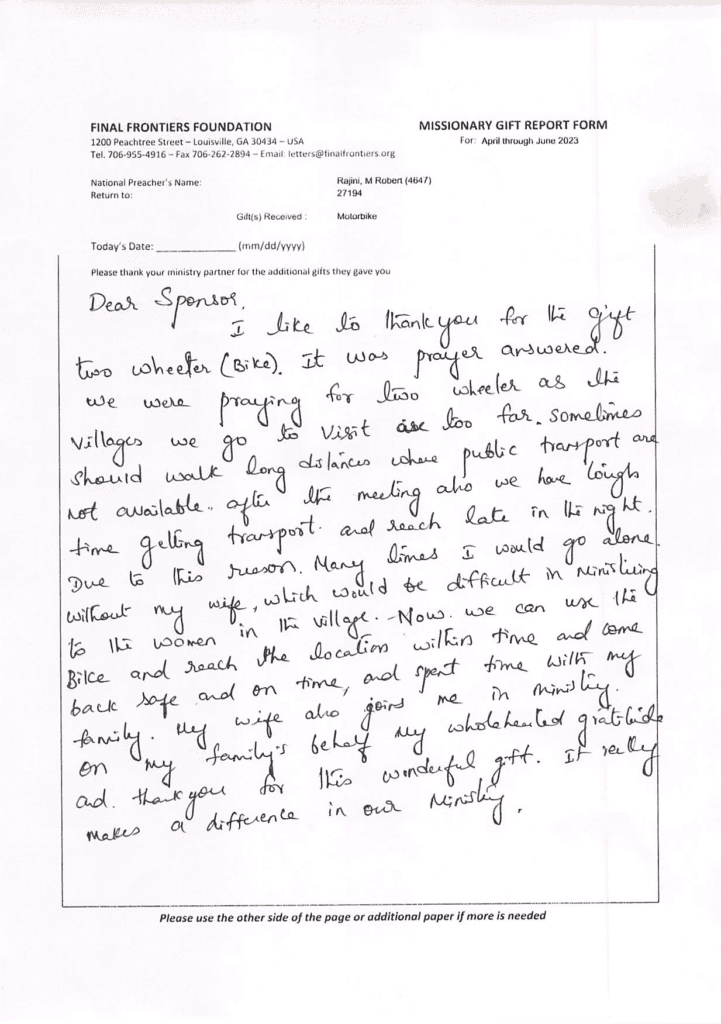 FINAL FRONTIERS FOUNDATION
MISSIONARY GIFT REPORT FORM
1200 Peachtree Street – Louisville, GA 30434 – USA
For: April through June 2023
Tel. 706-955-4916 – Fax 706-262-2894 – Email: letters@finalfrontiers.org
National Preacher's Name: Rajini, M Robert (4647)
Return to: 27194
Gift(s) Received : Motorbike
Today's Date: ____________ (mm/dd/yyyy)
Please thank your ministry partner for the additional gifts they gave you
Dear Sponsor,
I like to thank you for the gift
two wheeler (Bike). It was prayer answered.
we were praying for two wheeler as the
villages we go to visit are too far. Sometimes
should walk long distances where public transport are
not available. after the meeting also we have tough
time getting transport. and reach late in the night.
Due to this reason. Many times I would go alone.
without my wife, which would be difficult in Ministring
to the women in the village. Now. we can use the
Bike and reach the location within time and come
back safe and on time, and spent time with my
family. My wife also joins me in ministry.
on my family's behalf my wholehearted gratitude
and. thank you for this wonderful gift. It really
makes a difference in our Ministry.
Please use the other side of the page or additional paper if more is needed